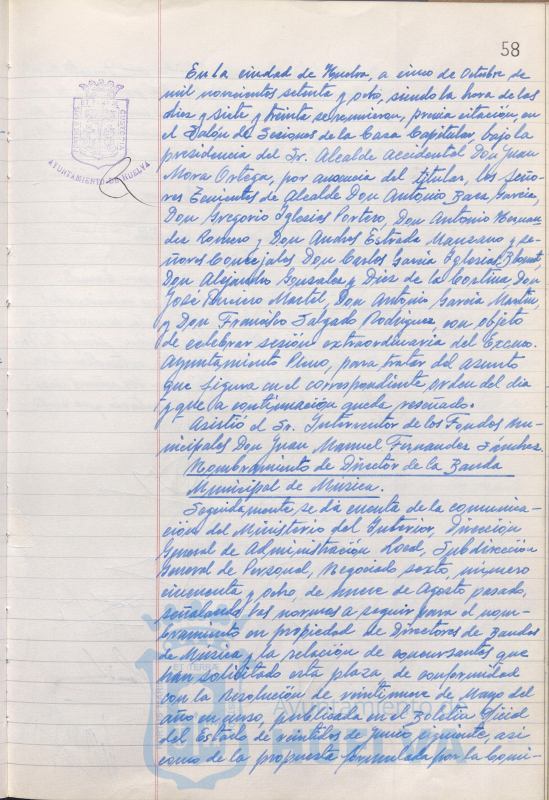 58
En la ciudad de Huelva, a cinco de Octubre de
mil novecientos setenta y ocho, siendo la hora de las
diez y siete y treinta se reunieron, previa citación, en
el Salón de Sesiones de la Casa Capitular, bajo la
presidencia del Sr. Alcalde accidental Don Juan
Mora Ortega, por ausencia del titular, los Seño-
res Tenientes de Alcalde Don Antonio Baca García,
Don Gregorio Iglesias Portero, Don Antonio Hernan-
dez Romero y Don Andres Estrada Manzano y se-
ñores Concejales Don Carlos García Iglesias,
Don Alejandro Gonzalez y Diez de la Cortina, Don
José Martel, Don Antonio García Martín,
y Don Francisco Salgado Rodriguez, con objeto
de celebrar sesión extraordinaria del Excmo.
Ayuntamiento Pleno, para tratar del asunto
que figura en el correspondiente orden del día
y que a continuación queda reseñado.
Asistió el Sr. Interventor de los Fondos mu-
nicipales Don Juan Manuel Fernandez Sánchez.
Nombramiento de Director de la Banda
Municipal de Música.
Seguidamente se dá cuenta de la comunica-
ción del Ministerio del Interior, Dirección
General de Administración Local, Subdirección
General de Personal, Negociado sexto, número
cincuenta y ocho, de nueve de Agosto pasado,
señalando las normas a seguir para el nom-
bramiento en propiedad de Directores de Bandas
de Música y la relación de concursantes que
han solicitado esta plaza de conformidad
con la Resolución de veintinueve de Mayo del
año en curso, publicada en el Boletín Oficial
del Estado de veintidos de Junio siguiente, así
como de la propuesta formulada por la Comi-
AYUNTAMIENTO DE HUELVA
Ayuntamiento de
HUELVA